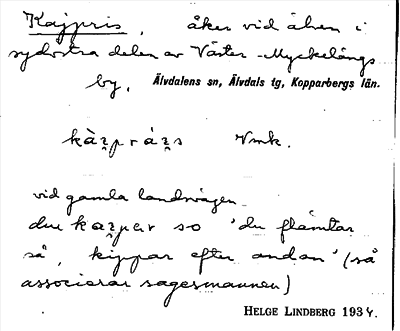 Kajpris, åker vid älven i
sydöstra delen av Väster-Myckelängs
by, Älvdalens sn, Älvdals tg, Kopparbergs län.
kàʒprás Vmk.
vid gamla landsvägen.
du kaʒper so 'du flämtar
så, kippar efter andan' (så
associerar sagesmannen)
HELGE LINDBERG 1934.